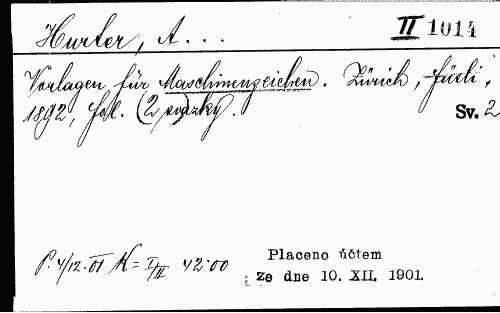 Hurter, A... II 1014
Vorlagen für Maschinenzeichen. Zürich, Füsli,
1892, fol. (2 svazky). Sv. 2
P. 4/12.01 K = I/II 42.00
Placeno účtem
Ze dne 10. XII. 1901.